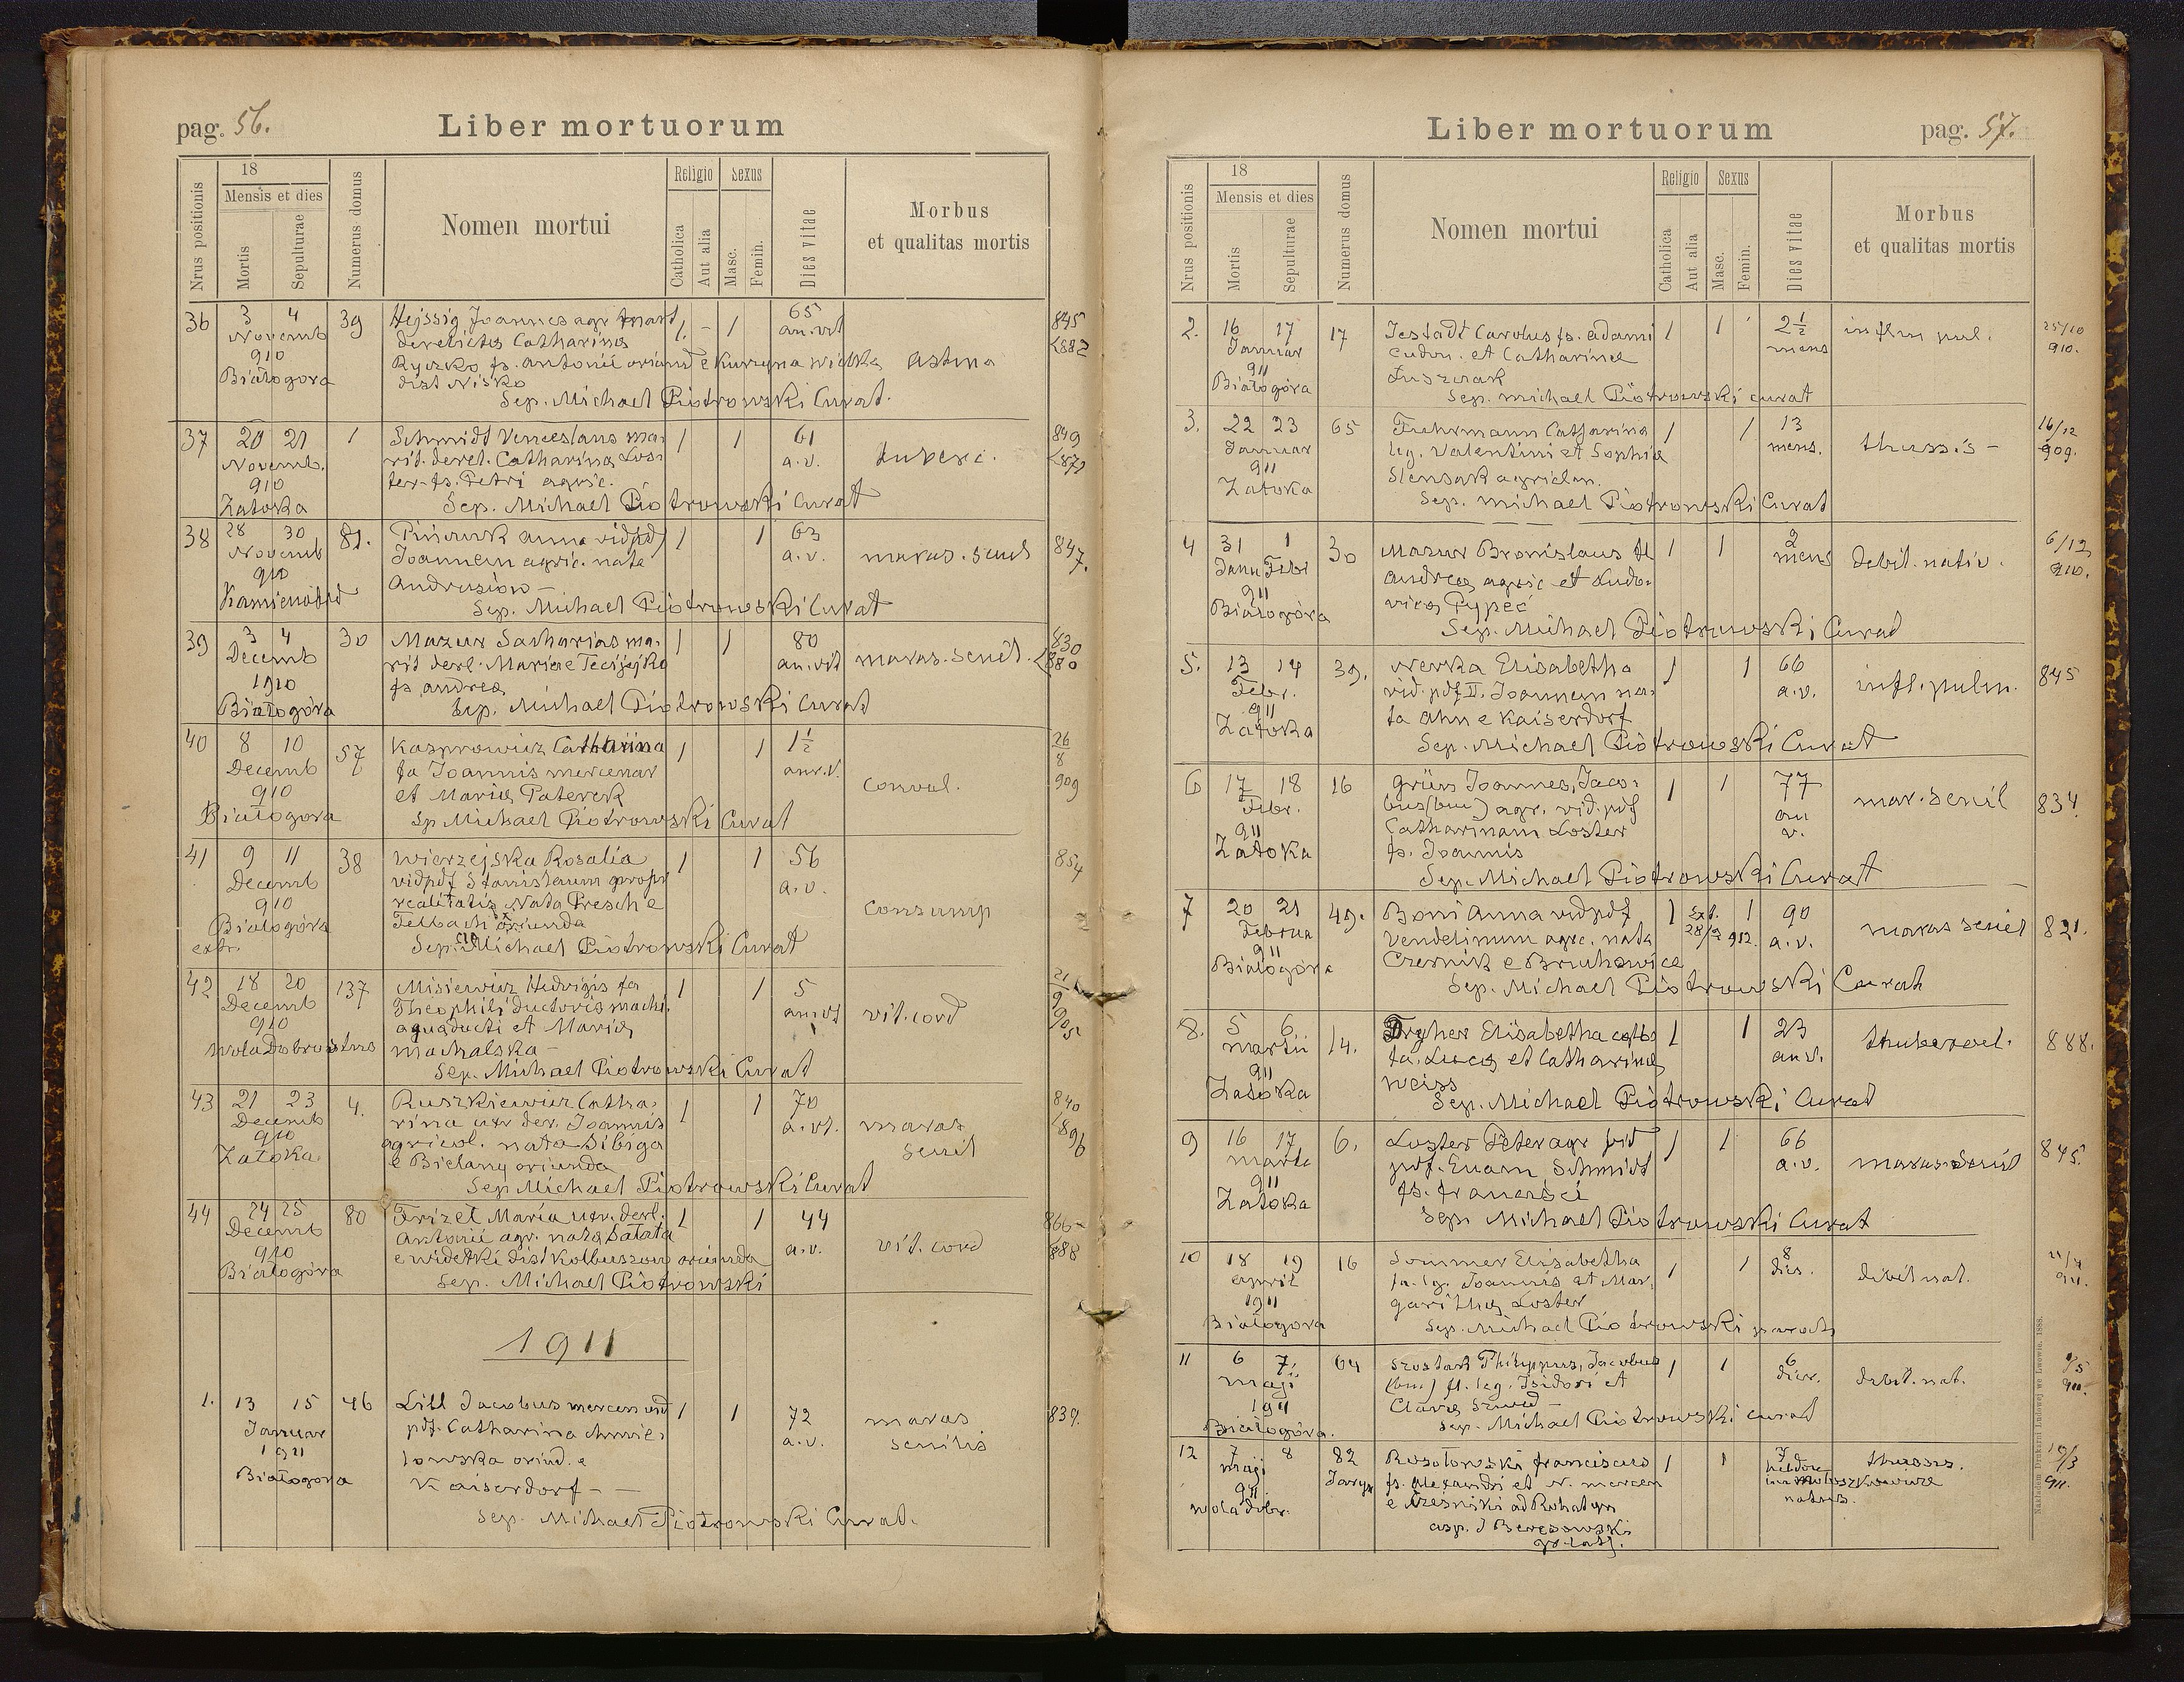 pag. 56.
Liber mortuorum
Nrus positionis
18
Mensis et dies
Mortis
Sepulturae
Numerus domus
Nomen mortui
Religio
Catholica
Aut alia
Sexus
Masc.
Femin.
Dies vitae
Morbus
et qualitas mortis
36 3 4 39 Hejssig Joannes agr 1. - 1 65 845
Novemb derelictes Catharina an. vit 882
910 Ryszko fs. Antonii oriund e Kurzyna wielka astma
Białogóra dist Nisko
Sep. Michael Piotrowski Curat.
37 20 21 1 Schmidt Venceslaus ma- 1 1 61 849
Novemb. rit. derel. Catharina Los- a.v. 872
910 ter fs. Petri agric.
Zatoka Sep. Michael Piotrowski Curat
38 28 30 81. anna vid pdf 1 1 63 847.
Novemb Joannem agric. nata a.v. maras. senil
910 Andrusiów -
Sep. Michael Piotrowski Curat
39 3 4 30 Mazur Sacharias ma- 1 1 80 830
Decemb rit derl. Mariae an. vit maras. senil. 880
1910 fs andrea
Białogóra Sep. Michael Piotrowski Curat
40 8 10 57 Kasprowicz Catharina 1 1 1½ 26
Decemb fa Joannis mercenar ann. v. 8
910 et Maria Paterek conval. 909
Białogóra Sp Michael Piotrowski Curat
41 9 11 38 Wierzejska Rosalia 1 1 56 854
Decemb vid pdf Stanislaum propr a.v.
910 realitatis nata Presch e consump
Białogóra Felbach oriunda
extr. Sep. Michael Piotrowski Curat
42 18 20 137 Misiewicz Hedvigis fa 1 1 5 21
Decemb Theophili ductoris machi. ann. vit vit. cord 9
910 aquaducti et Maria 905
Wola Dobrostans Machalska -
Sep. Michael Piotrowski Curat
43 21 23 4. Ruszkiewicz Catha- 1 1 70 840
Decemb rina uxr der. Joannis a. vt. maras 896
910 agricol. nata Sibiga senil
Zatoka. e Bielany oriunda
Sep Michael Piotrowski Curat
44 24 25 80 Frizel Maria uxr. derl. 1 1 44 866-
Decemb Antonii agr. nata Sałata a.v. vit. cord 888
910 e widełki dist Kolbuszow oriunda
Białogóra Sep. Michael Piotrowski
1911
1. 13 15 46 Lill Jacobus mercen vid 1 1 72 maras 839.
Januar pdf. Catharina Chmie- a.v. senilis
1911 lowska oriud. e
Białogora Kaiserdorf - -
Sep. Michael Piotrowski Curat.
Liber mortuorum
pag. 57.
Nrus positionis
18
Mensis et dies
Mortis
Sepulturae
Numerus domus
Nomen mortui
Religio
Catholica
Aut alia
Sexus
Masc.
Femin.
Dies vitae
Morbus
et qualitas mortis
2. 16 17 17 Jestadt Carolus fs. Adami 1 1 2½ inflm pul. 25/10
Januar cudon. et Catharinae mens 910.
911 Łuszczak
Białogóra Sep. Michael Piotrowski curat
3. 22 23 65 Fuhrmann Catharina 1 1 13 16/12
Januar leg. Valentini et Sophia mens. thussis - 909.
911 Slensak agricolan.
Zatoka Sep. Michael Piotrowski Curat
4 31 1 30 Mazur Bronislaus fl 1 1 2 6/12
Janu Febr andrea agric et Ludo- mens debil. nativ. 910.
911 vica Pypeć
Białogóra Sep. Michael Piotrowski Curat
5. 13 14 39. Werka Elisabetha 1 1 66 845
Febr. vid. pdf II. Joannem na- a.v. infl. pulm.
911 ta Ahn e Kaiserdorf
Zatoka Sep. Michael Piotrowski Curat
6 17 18 16 Grün Joannes, Jaco- 1 1 77 mar. senil 834.
Febr. bus (bin.) agr. vid. pdf an
911 Catharinam Loster v.
Zatoka fs. Joannis
Sep. Michael Piotrowski Curat
7 20 21 49. Boni Anna vid pdf 1 Ext. 1 90 821.
Februa Vendelinum agrc. nata 28/2 912. a.v. maras senil
911 Czernik e Bruchowice
Białogóra Sep. Michael Piotrowski Curat
8. 5 6 14. Elisabetha 1 1 23 thubercul. 888.
Martii fa. Luca et Catharina an v.
911 Weiss
Zatoka Sep. Michael Piotrowski Curat
9 16 17 6. Loster Peter agr vid 1 1 66 845.
Marti pdf. Evam Schmidt a.v. maras. senil
911 fs. Francisci
Zatoka Sep. Michael Piotrowski Curat
10 18 19 16 Sommer Elisabetha 1 1 8 11/4
April fa. lg. Joannis et Mar- dies. debil nat. 911.
1911 garitha Loster
Białogóra Sep. Michael Piotrowski paroch
11 6 7. 64 Szostak Philippus, Jacobus 1 1 6 1/5
Maji (bin.) fl. leg. Isidori et dier. debil. nat. 911.
1911 Clara Szwed -
Białogóra. Sep. Michael Piotrowski Curat
12 7 8 82 Rosołowski Franciscus 1 1 7 thussis. 19/3
Maji fs. Alexandri et N. mercen hebdom 911.
911 e ad Rohatyn natus.
Wola dobr. asp. J Beresowski
gr. cath.
Nakładem Drukarni Ludowej we Lwowie. 1888.